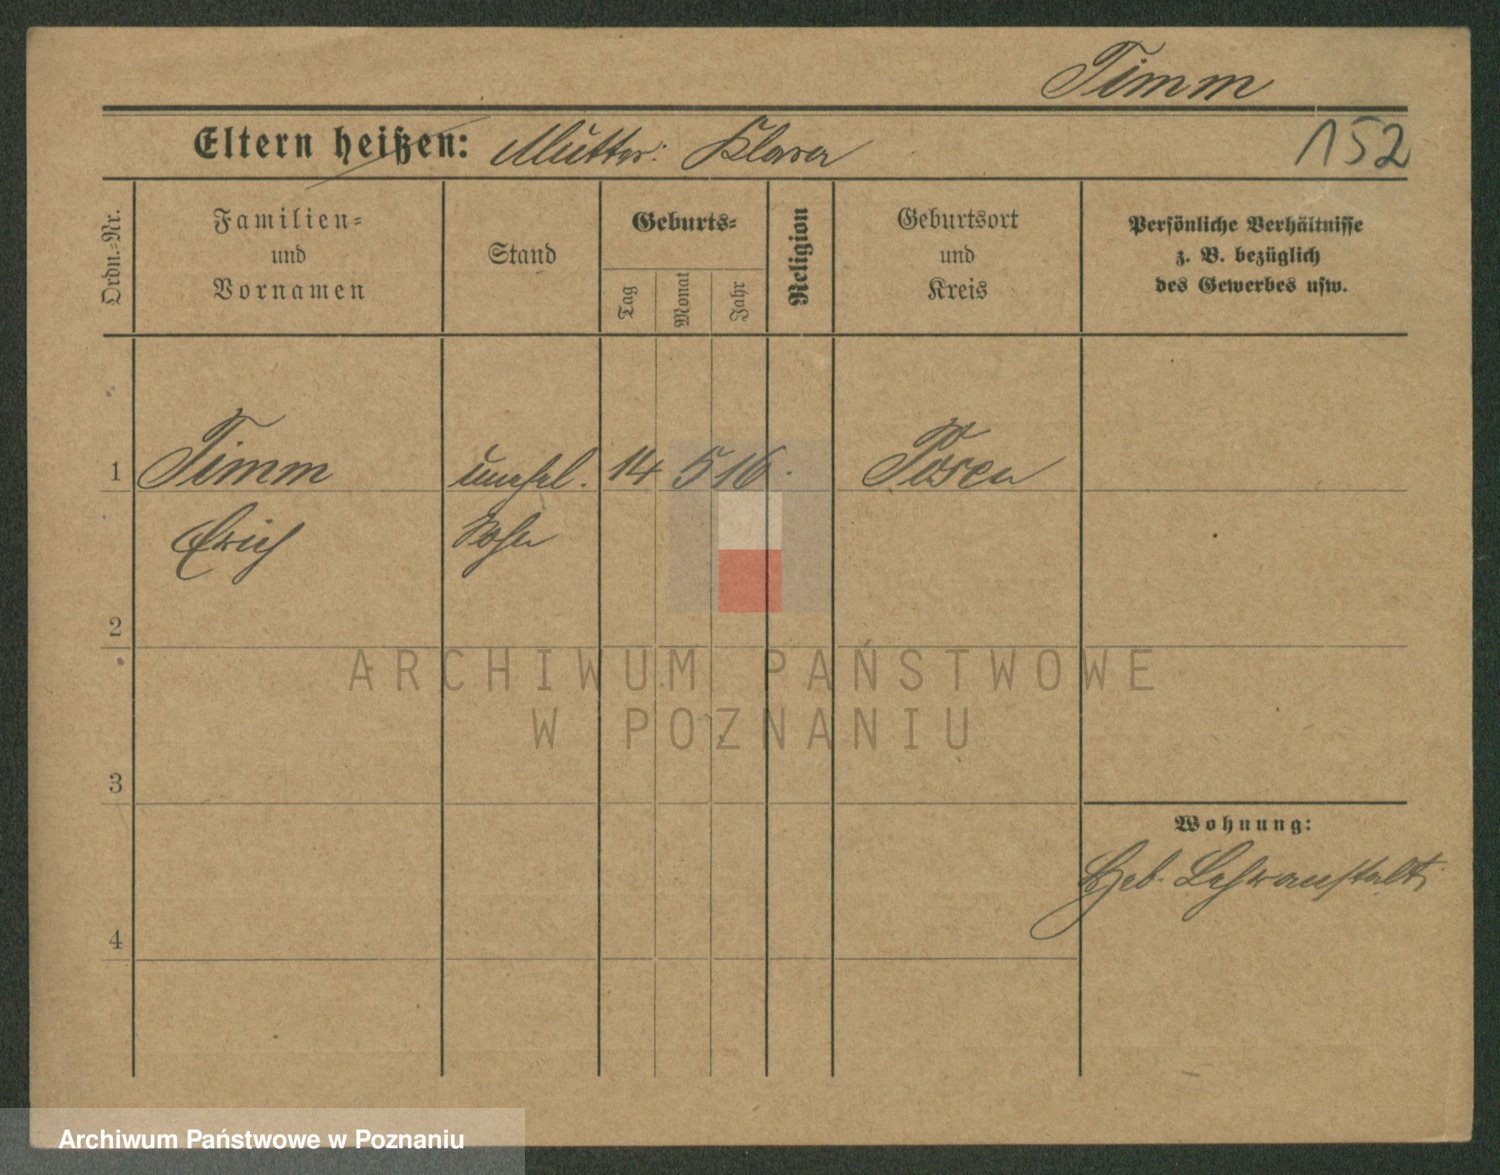 Timm
Eltern heißen: Mutter: Klara
152
Ordn.-Nr.
Familien-
und
Vornamen
Stand
Geburts-
Tag
Monat
Jahr
Religion
Geburtsort
und
Kreis
Persönliche Verhältnisse
z. B. bezüglich
des Gewerbes usw.
1 Timm unehel. 14 5 16. Posen
Erich Sohn
2
ARCHIWUM PAŃSTWOWE
W POZNANIU
3
Wohnung:
Heb. Lehranstalt
4
Archiwum Państwowe w Poznaniu